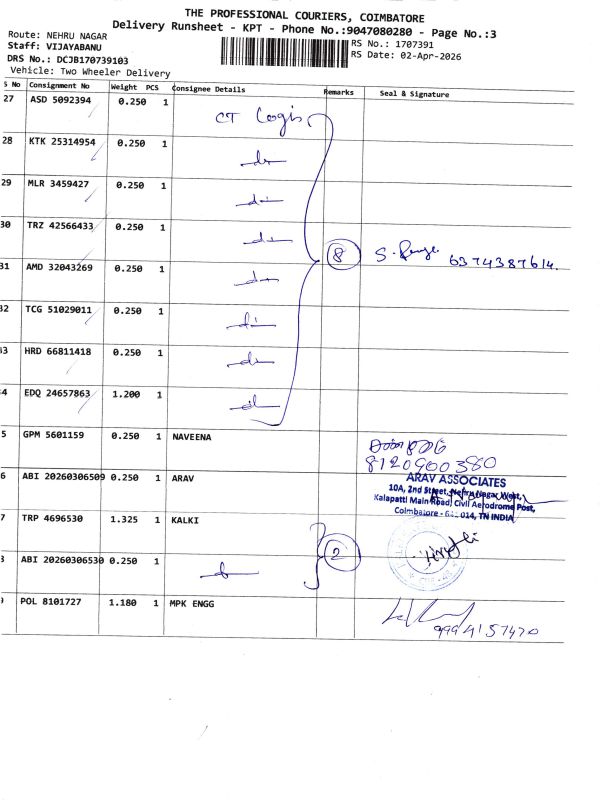 THE PROFESSIONAL COURIERS, COIMBATORE
Delivery Runsheet - KPT - Phone No.:9047080280 - Page No.:3
Route: NEHRU NAGAR
Staff: VIJAYABANU
RS No.: 1707391
DRS No.: DCJB170739103
RS Date: 02-Apr-2026
Vehicle: Two Wheeler Delivery
S No Consignment No Weight PCS Consignee Details Remarks Seal & Signature
27 ASD 5092394 0.250 1 CT Logis
28 KTK 25314954 0.250 1
29 MLR 3459427 0.250 1
30 TRZ 42566433 0.250 1 8 S. 6374387614.
31 AMD 32043269 0.250 1
32 TCG 51029011 0.250 1
33 HRD 66811418 0.250 1
4 EDQ 24657863 1.200 1
5 GPM 5601159 0.250 1 NAVEENA
8120900380
6 ABI 20260306509 0.250 1 ARAV
ARAV ASSOCIATES
10A, 2nd Street, Nehru Nagar West,
Kalapatti Main Road, Civil Aerodrome Post,
Coimbatore - 641 014, TN INDIA
7 TRP 4696530 1.325 1 KALKI
8 ABI 20260306530 0.250 1 2
9 POL 8101727 1.180 1 MPK ENGG
9994157470